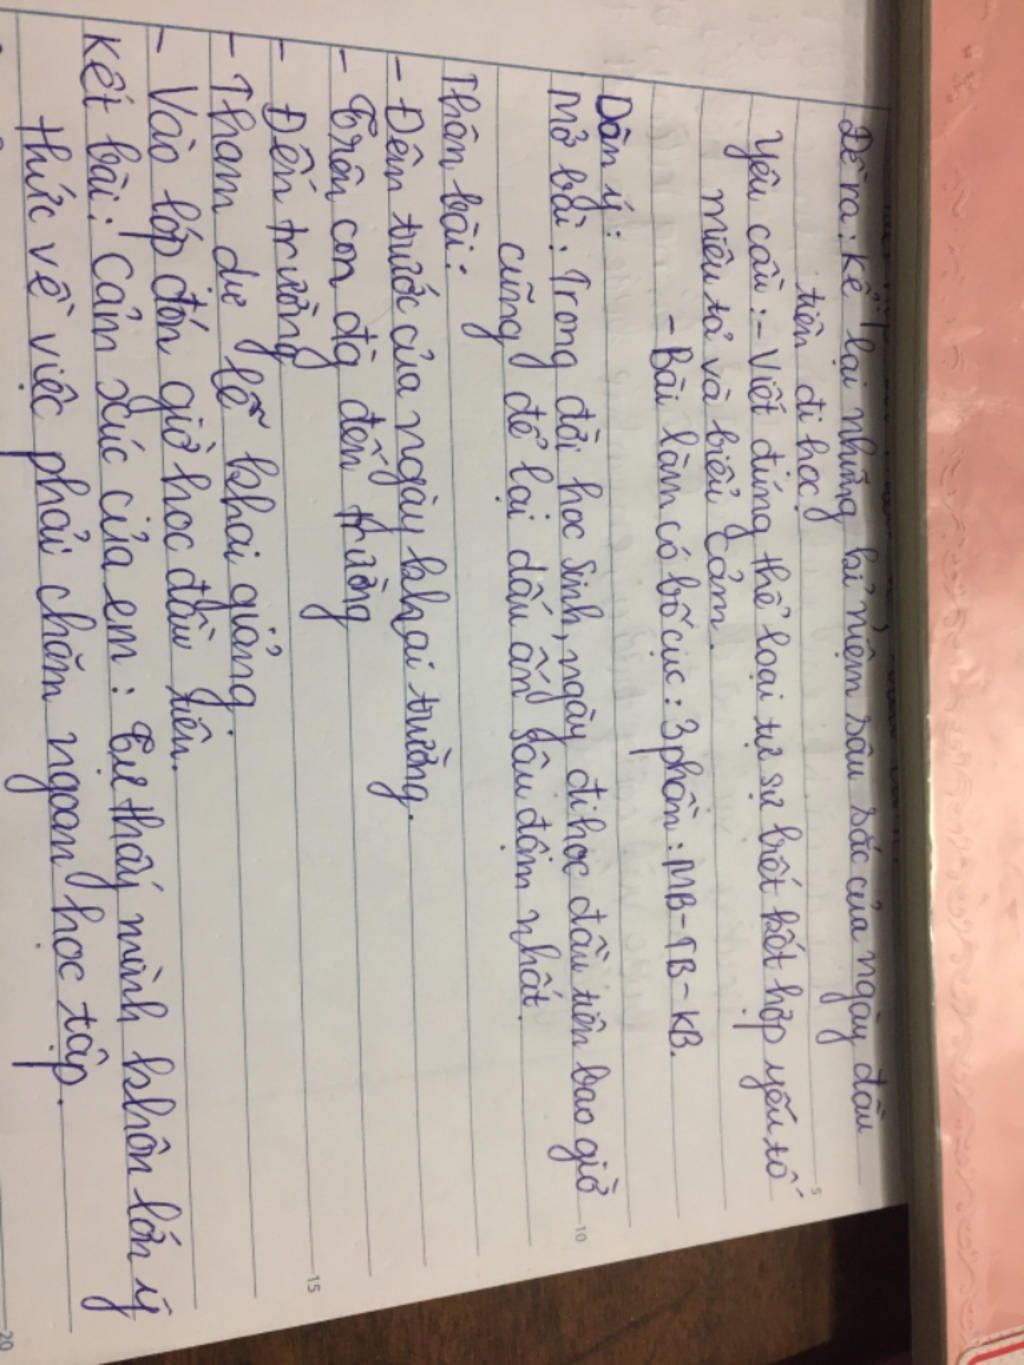 Đề ra: Kể lại những kỉ niệm sâu sắc của ngày đầu
tiên đi học
Yêu cầu: - Viết đúng thể loại tự sự biết kết hợp yếu tố
miêu tả và biểu cảm.
- Bài làm có bố cục: 3 phần: MB-TB-KB.
Dàn ý:
Mở bài: Trong đời học sinh, ngày đi học đầu tiên bao giờ
cũng để lại dấu ấn sâu đậm nhất.
Thân bài:
- Đêm trước của ngày khai trường.
- Trên con đg đến trường
- Đến trường
- Tham dự lễ khai giảng.
- Vào lớp đón giờ học đầu tiên.
Kết bài: Cảm xúc của em: Tự thấy mình khôn lớn ý
thức về việc phải chăm ngoan học tập.
5
10
15
20